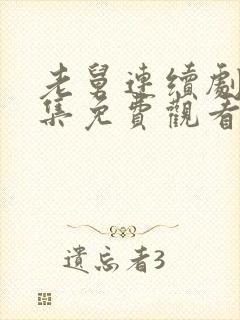 老舅連續劇
集免費觀看
遺忘者3